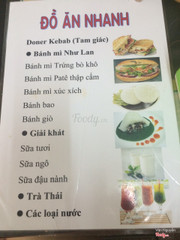 ĐỒ ĂN NHANH
Doner Kebab (Tam giác)
• Bánh mì Như Lan
Bánh mì Trứng bò khô
Bánh mì Patê thập cẩm
Bánh mì xúc xích
Bánh bao
Bánh giò
• Giải khát
Sữa tươi
Sữa ngô
Sữa đậu nành
• Trà Thái
• Các loại nước
Foody.vn